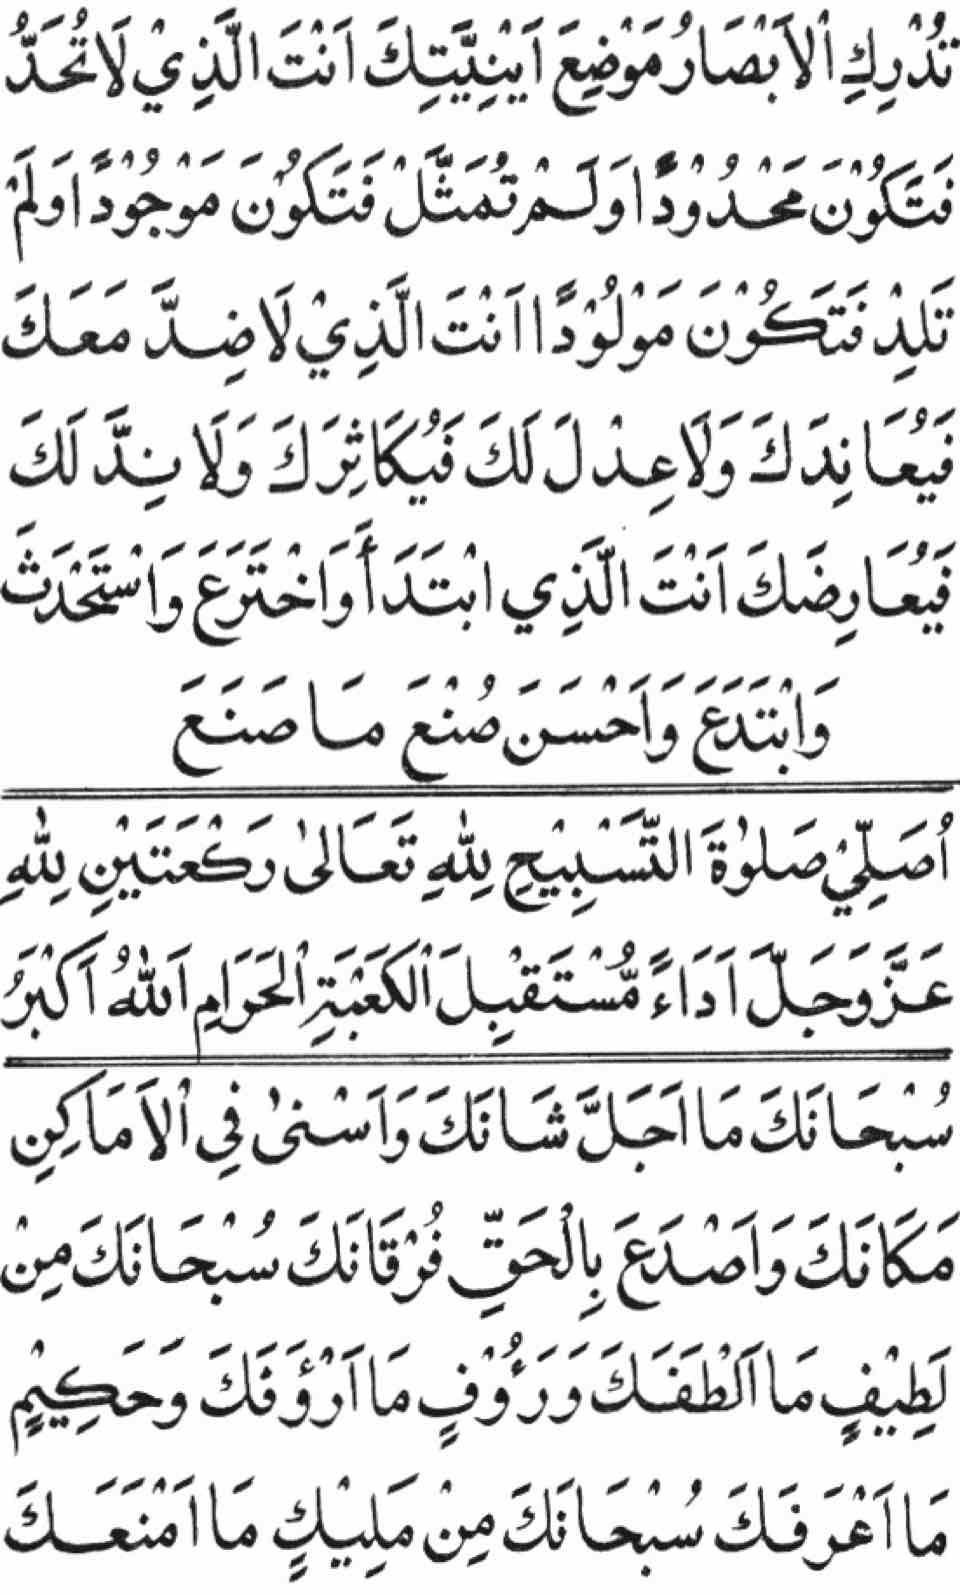 تُدْرِكِ الْاَبْصَارُ مَوْضِعَ اَيْنِيَّتِكَ اَنْتَ الَّذِيْ لَا تُحَدُّ
فَتَكُوْنَ مَحْدُوْدًا وَلَمْ تُمَثَّلْ فَتَكُوْنَ مَوْجُوْدًا وَلَمْ
تَلِدْ فَتَكُوْنَ مَوْلُوْدًا اَنْتَ الَّذِيْ لَا ضِدَّ مَعَكَ
فَيُعَانِدَكَ وَلَا عِدْلَ لَكَ فَيُكَاثِرَكَ وَلَا نِدَّ لَكَ
فَيُعَارِضَكَ اَنْتَ الَّذِي ابْتَدَأَ وَاخْتَرَعَ وَاسْتَحْدَثَ
وَابْتَدَعَ وَاَحْسَنَ صُنْعَ مَا صَنَعَ
اُصَلِّيْ صَلٰوةَ التَّسْبِيْحِ لِلّٰهِ تَعَالىٰ رَكْعَتَيْنِ لِلّٰهِ
عَزَّ وَجَلَّ اَدَاءً مُّسْتَقْبِلَ الْكَعْبَةِ الْحَرَامِ اَللّٰهُ اَكْبَرُ
سُبْحَانَكَ مَا اَجَلَّ شَانَكَ وَاَسْنىٰ فِي الْاَمَاكِنِ
مَكَانَكَ وَاَصْدَعَ بِالْحَقِّ فُرْقَانَكَ سُبْحَانَكَ مِنْ
لَطِيْفٍ مَا اَلْطَفَكَ وَرَءُوْفٍ مَا اَرْؤَفَكَ وَحَكِيْمٍ
مَا اَعْرَفَكَ سُبْحَانَكَ مِنْ مَلِيْكٍ مَا اَمْنَعَكَ